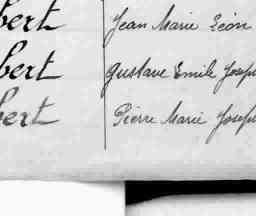 bert Jean Marie Léon
bert Gustave Emile Joseph
bert Pierre Marie Joseph